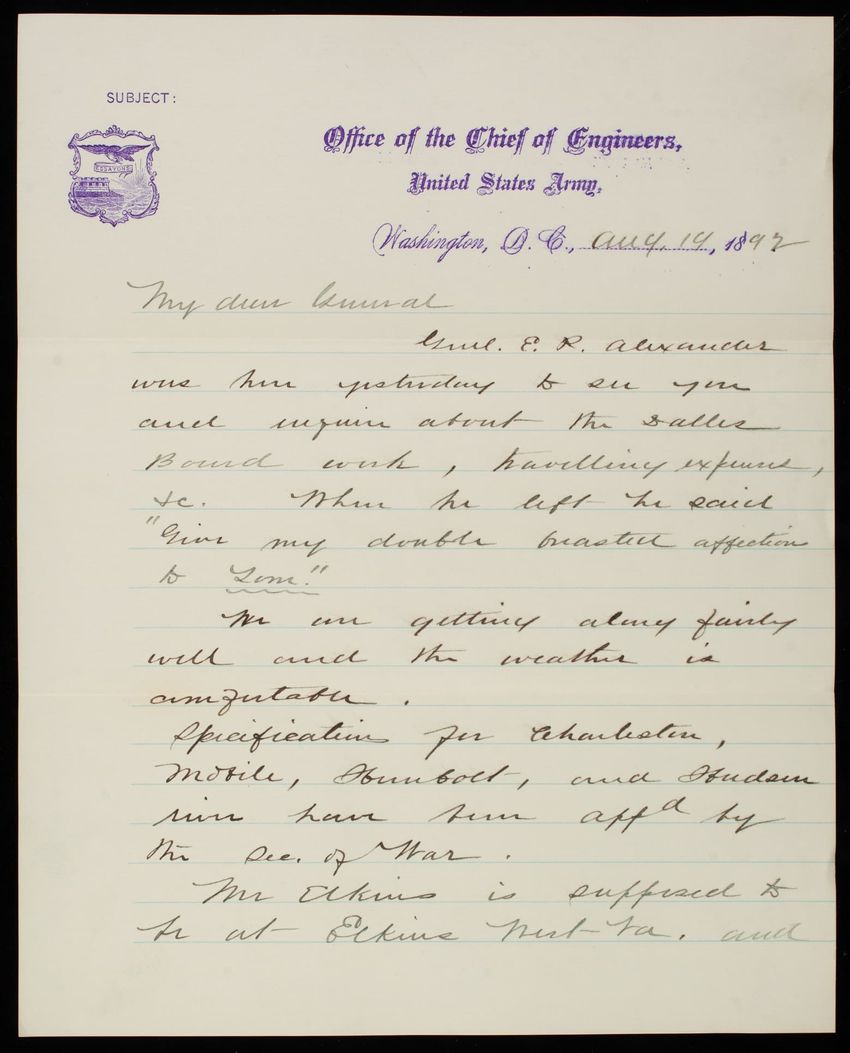 SUBJECT:
ESSAYONS
Office of the Chief of Engineers,
United States Army,
Washington, D. C., Aug. 14, 1892
My dear General
Genl. E. P. Alexander
was here yesterday to see you
and inquire about the Dalles
Board work, travelling expenses,
&c. When he left he said
"Give my double breasted affection
to Tom."
We are getting along fairly
well and the weather is
comfortable.
Specifications for Charleston,
Mobile, Humbolt, and Hudson
river have been appd by
the Sec. of War.
Mr Elkins is supposed to
be at Elkins West Va. and